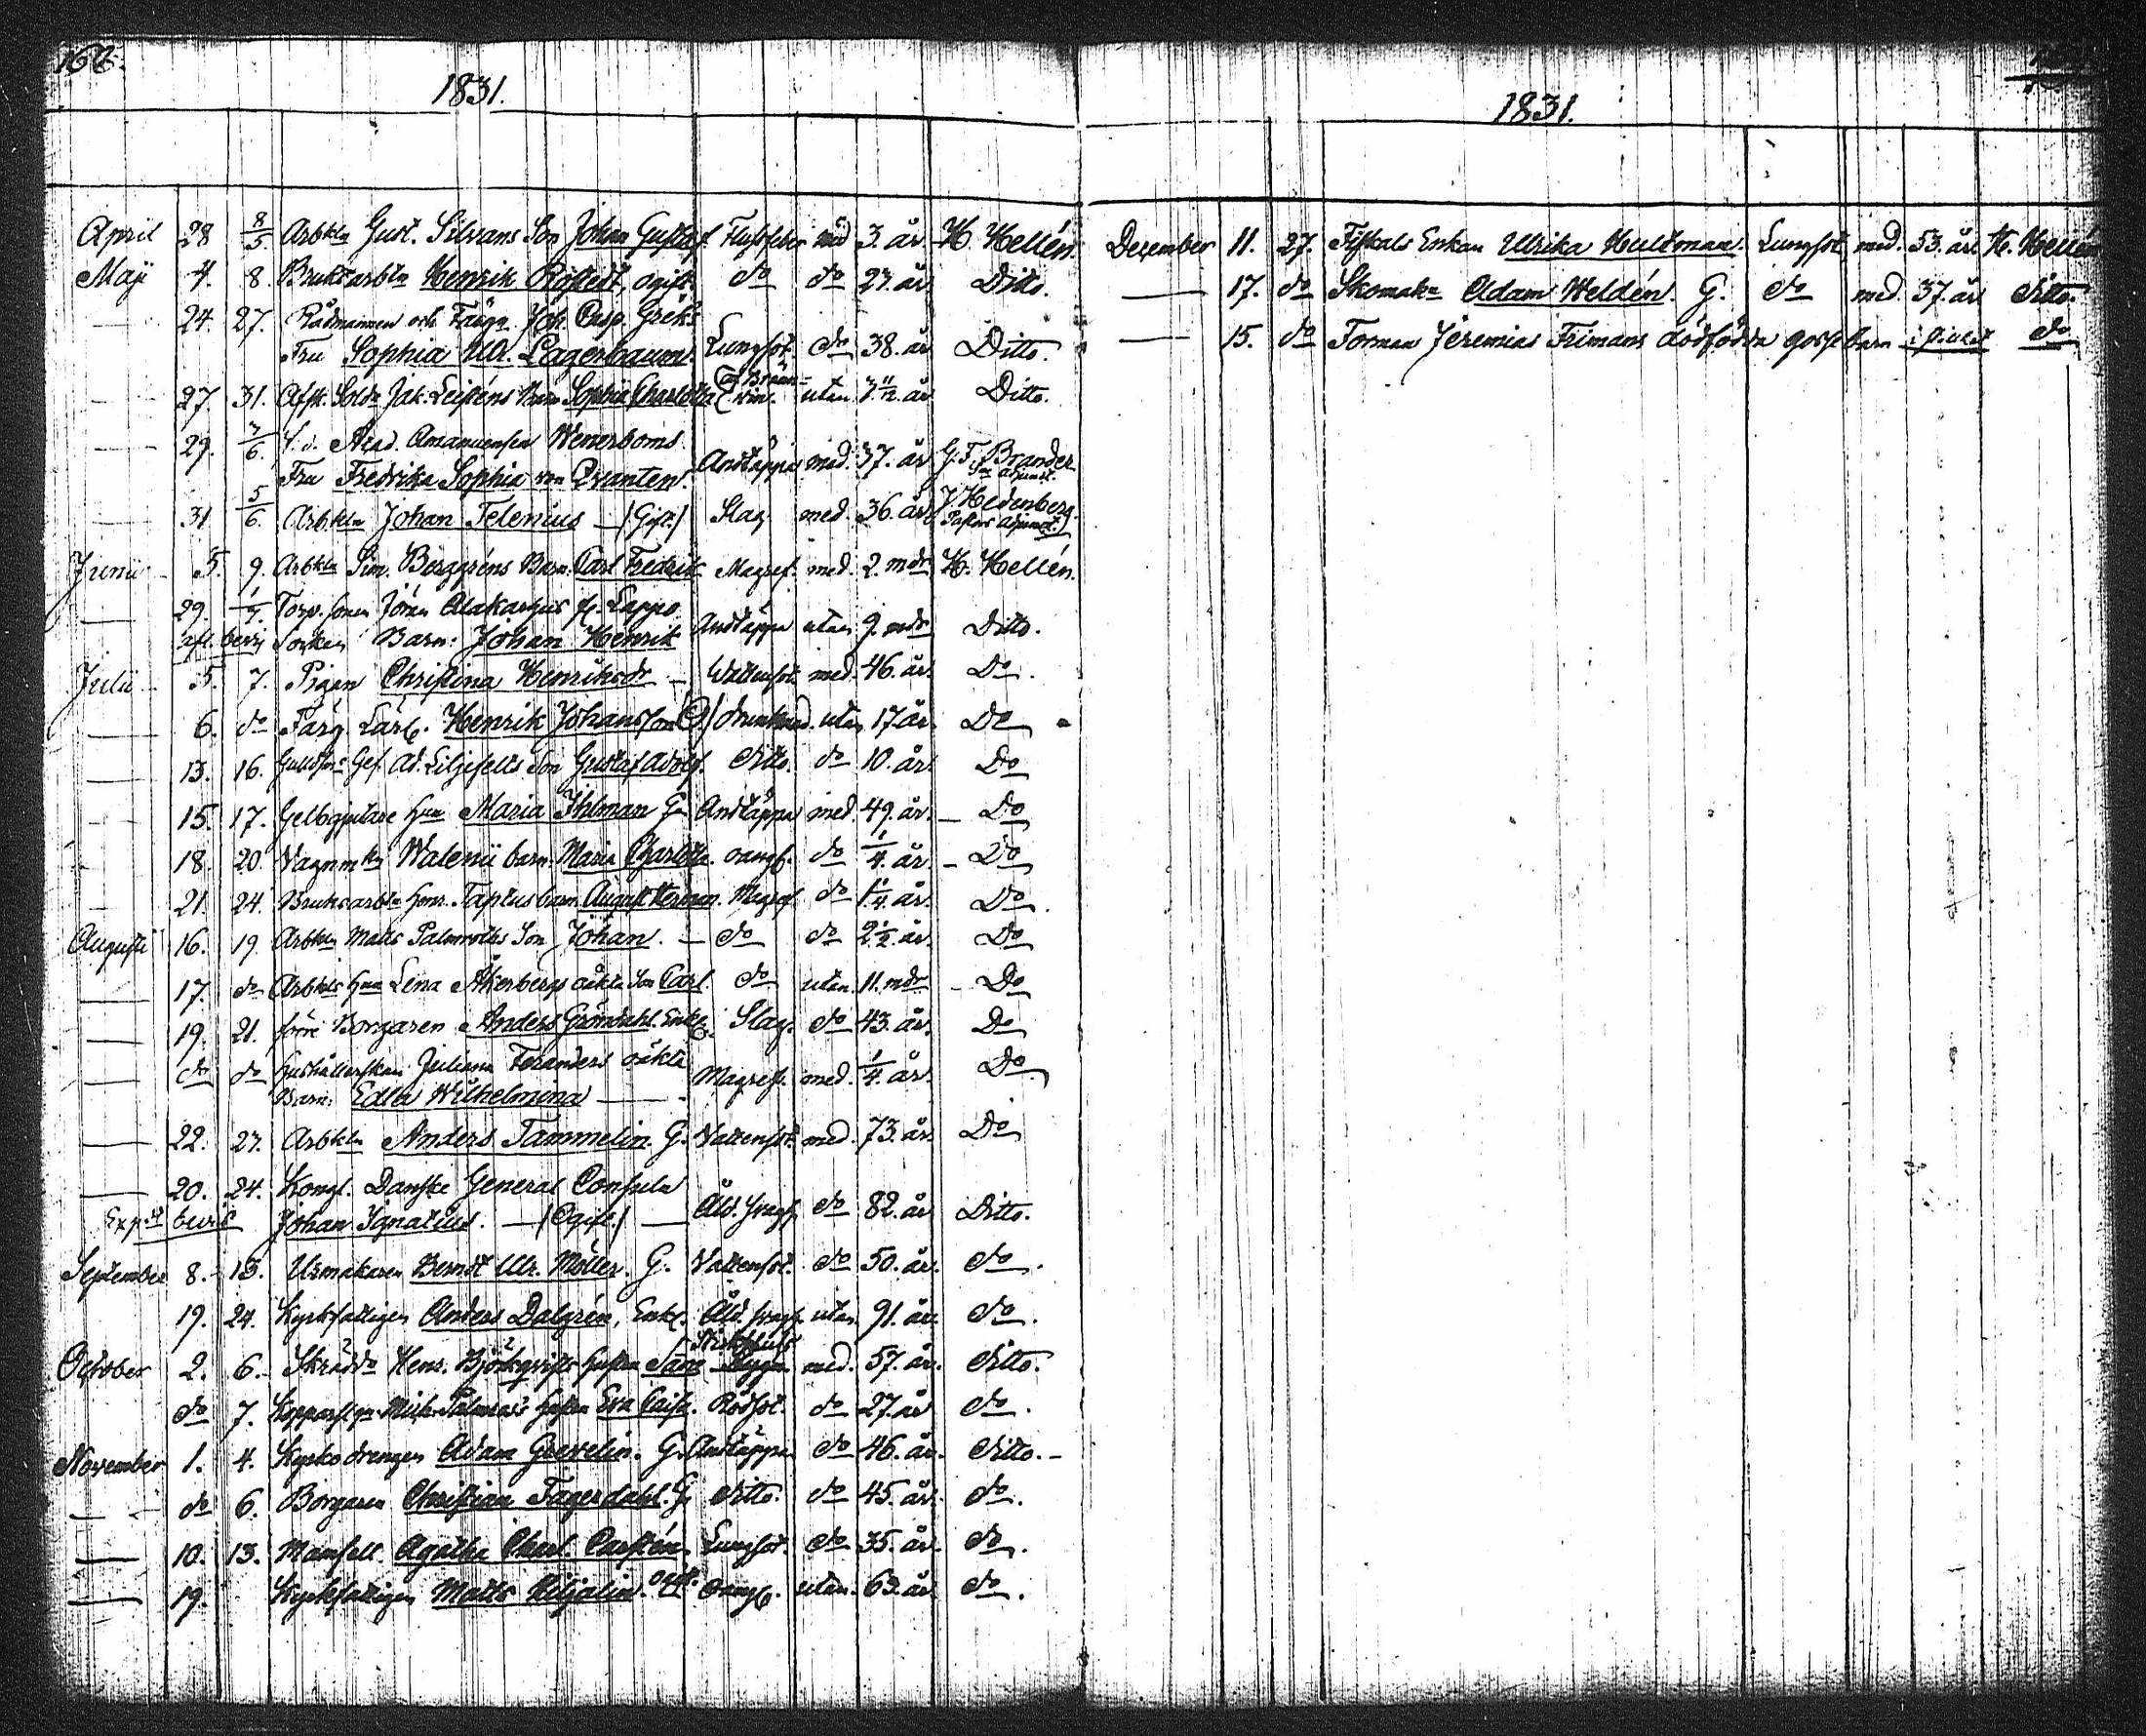 162.
1831.
April 28 8/5 Arbkln Gust. Silvans Son Johan Gustaf. Flussfeber med 3. år H. Hellén.
Maji 4. 8. Bruksarbln Henrik Rofstedt, ogift do do 27. år. Ditto.
24. 27. Rådmannen och Färgn. Joh. Casp. Greks
Fru Sophia Ulr. Lagerbaum. Lungsot do 38. år Ditto.
27. 31. Afsk. Soldn Jak. Leisténs Barn Sophia Charlotta (af Bränvin. utan. 7/12. år Ditto.
29. 6. f.d. Acad. Amanuensen Wenerboms
Fru Fredrika Sophia von Qvanten. Andtäppa med. 37. år G. F. Brander
adjunct.
31 5/6. Arbkln Johan Telenius — (Gift.) Slag med. 36. år J. Hedenberg.
Pastors adjunct.)
Junii 5. 9. Arbkln Sim. Berggréns Barn. Carl Fredrik Magref. med. 2. mdr H. Hellén.
29. Torp. sonen Jöran Alakarhus fr. Lappo
Socken Barn: Johan Henrik Andtäppa utan 9. mdr Ditto.
Julii 5. 7. Pigan Christina Henriksdr — Wattusot. med. 46. år. Do.
6. do Färg. Lärl. Henrik Johansson (O.) drunknad. utan 17 år. Do
13. 16. Guldsm. Ges. Ad. Liljefelts Son Gustaf Adolf. Ditto. do 10. år. Do
15. 17. Gelbgjutare Hun Maria Ihlman G. Andtäppa med. 49. år. — Do
18. 20. Vagnmkn Walenii barn. Maria Charlotta oangf. do 1/4. år. — Do
21. 24. Bruksarbln Henr. Taplus barn. August Herman. Magref. do 1 1/4. år. Do.
Augusti 16. 19. Arbkln Matts Palmroths Son Johan. — do do 2 1/2. år. Do
17. do Arbkls Hun Lena Åkerbergs oäkta Son Carl. do utan. 11. mdr — Do
19. 21. förre Borgaren Anders Gröndahl. Enkl. Slag. do 43. år. Do
do do Hushållerskan Juliana Foranders oäkta
Barn: Edla Wilhelmina — Magref. med. 1/4. år. Do.
22. 27. Arbkln Anders Tammelin. G. Vattensot. med. 73. år. Do
20. 24. Kongl. Danske General Consuln
Johan Ignatius. — (Ogift.) — Åld. sragh. do 82. år Ditto.
September 8. 15. Urmakaren Berndt Ulr. Möller. G. Vattensot. do 50. år. do.
19. 24. Kyrkfattigen Anders Dalgrén, Enkl. Åld. utan 91. år. do.
October 2. 6. Skräddn Henr. Björkqvists hustru Sara med. 57. år. Ditto.
do 7. Kopparsl. gn hustru Eva Caisa. Rödsot. do 27. år do.
November 1. 4. Kyrkodrengen Adam Grevelin. G. Andtäppa do 46. år. Ditto. —
do 6. Borgaren Christian Fagerdahl. G. Ditto. do 45. år. do.
10. 13. Mamsell. Agatha Charl. Carstén. Lungsot. do 35. år. do.
19. Kyrkfattigen Matts Kiljalin. Ogift. oangf. utan. 63. år. do.
1831.
December 11. 27. Fiskals Enkan Ulrika Hultman. Lungsot med. 53. år. H. Hellén
17. do Skomakn Adam Weldén. G. do med. 37. år Ditto.
15. do Forman Jeremias Frimans dödfödda gosse barn do